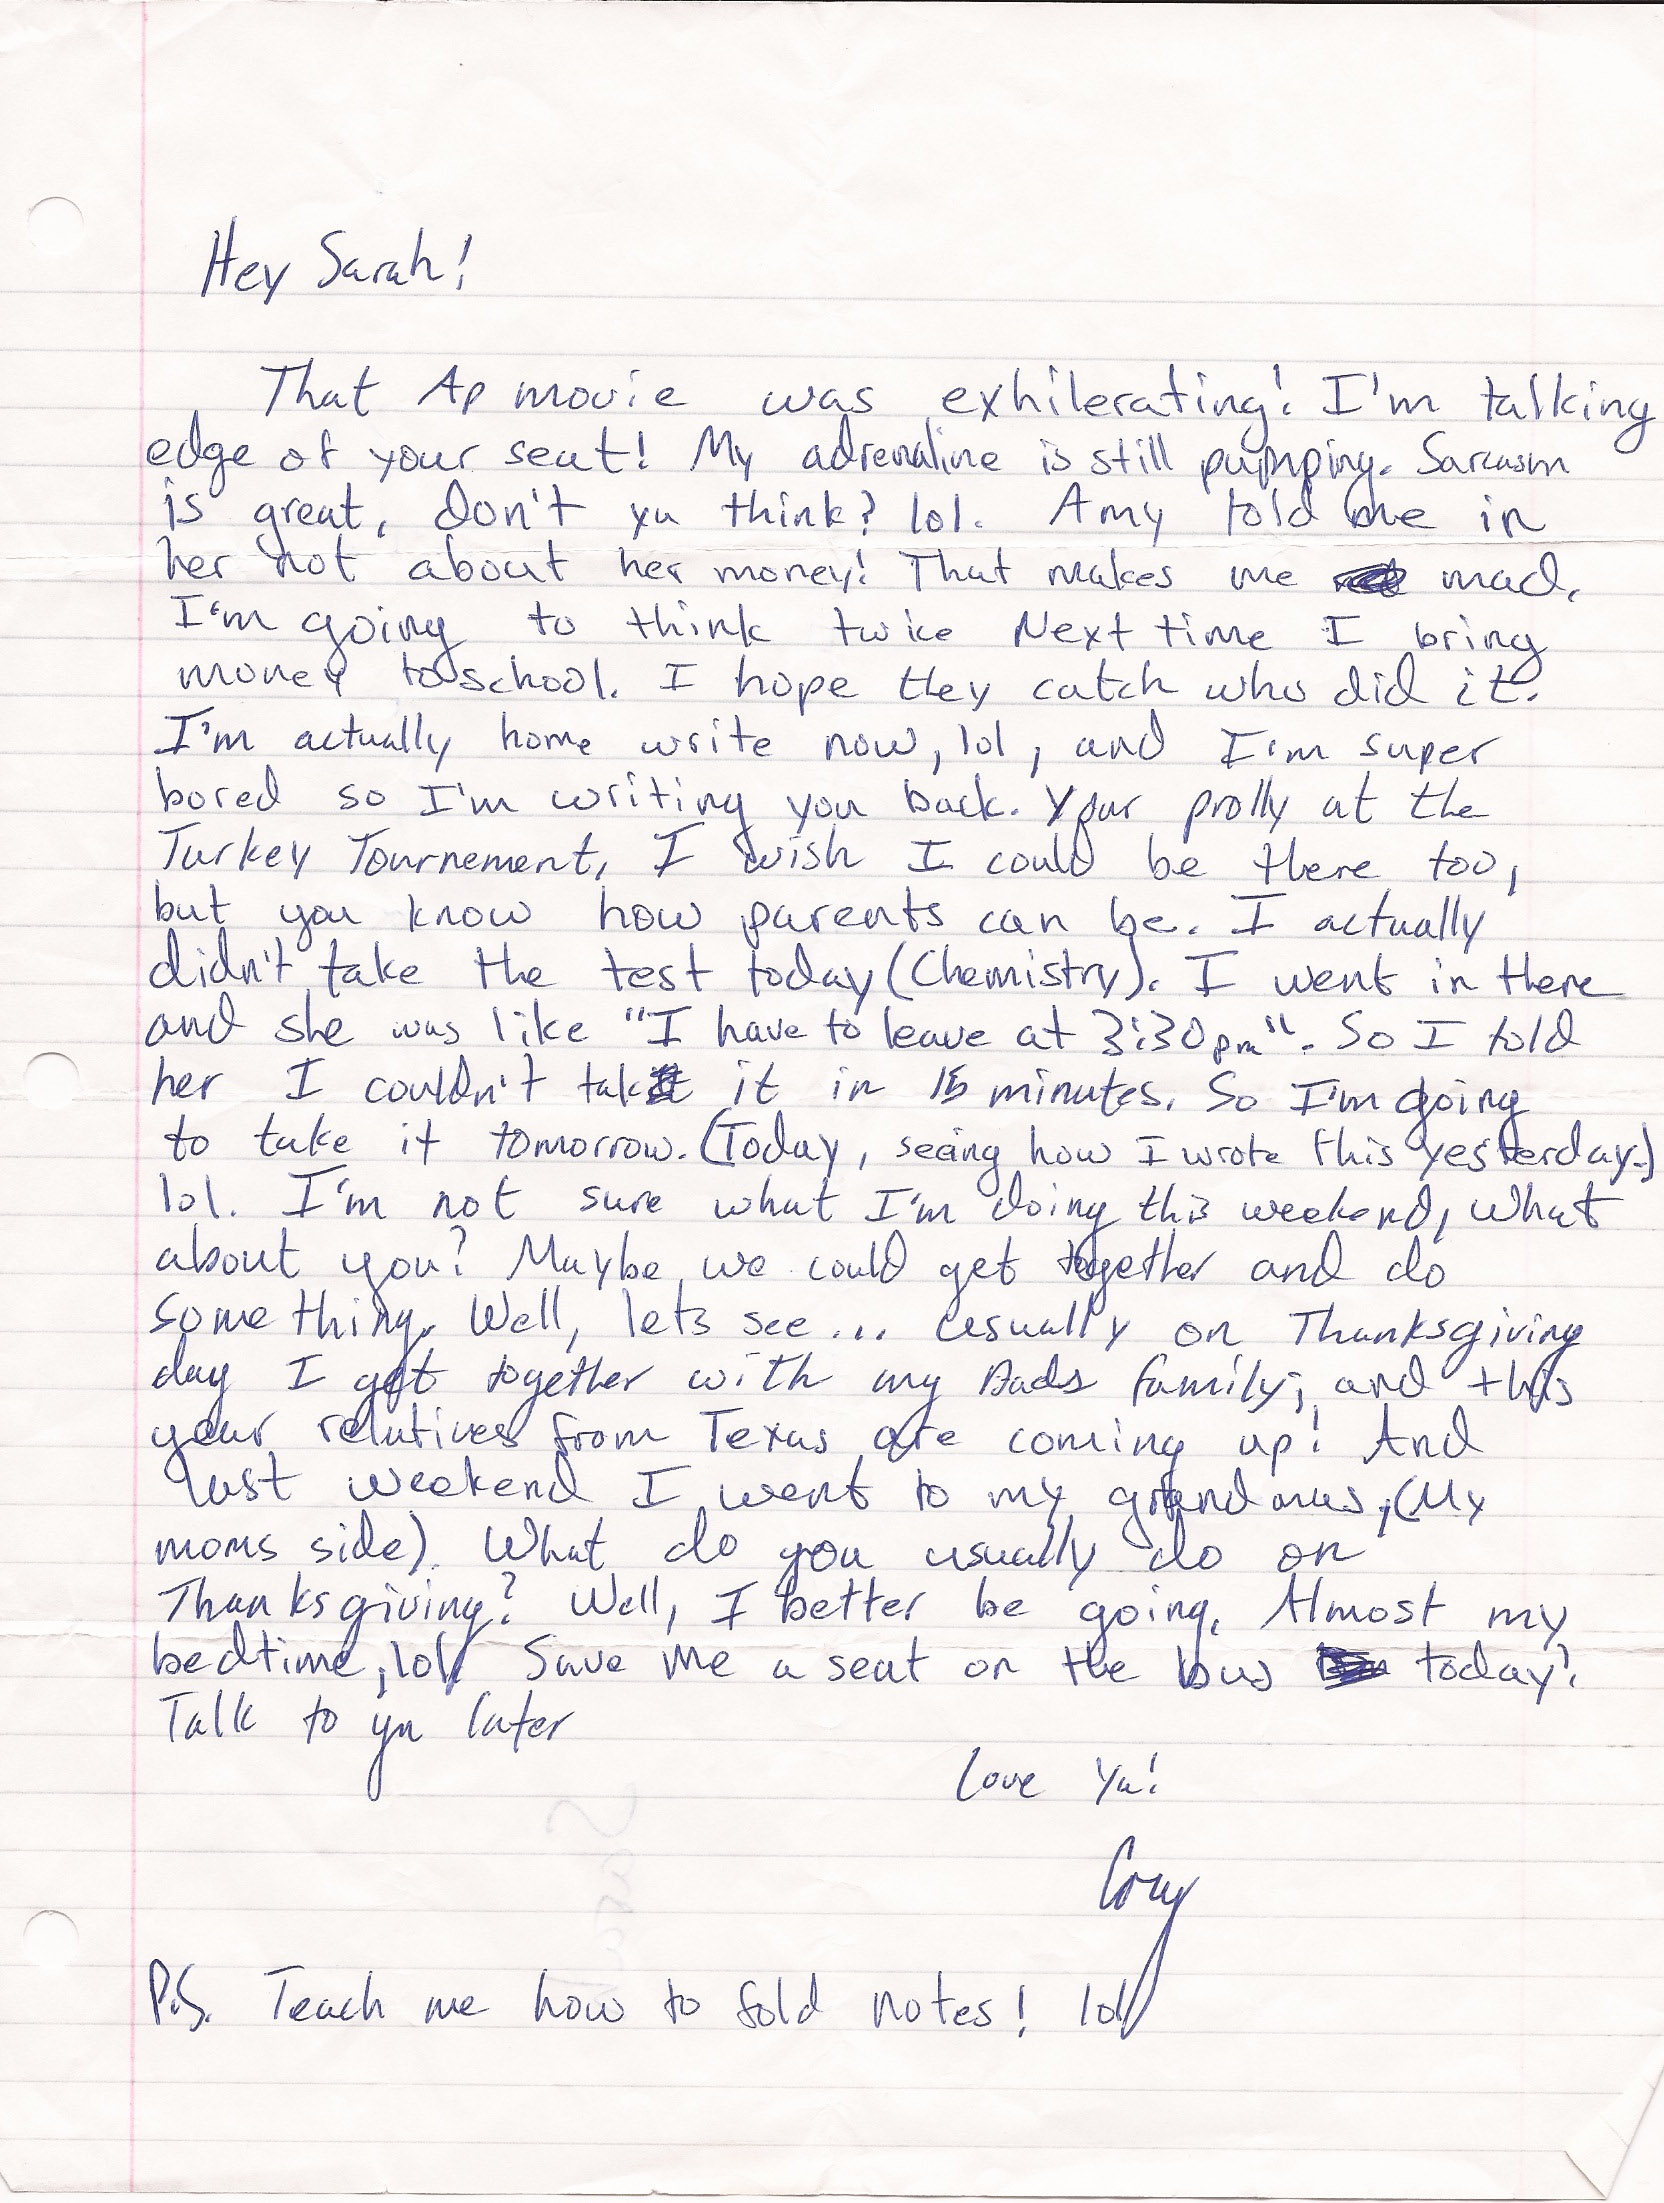 Hey Sarah!
That Ap movie was exhilerating! I'm talking
edge of your seat! My adrenaline is still pumping. Sarcasm
is great, don't ya think? lol. Amy told me in
her not about her money! That makes me mad.
I'm going to think twice Next time I bring
money to school. I hope they catch who did it.
I'm actually home write now, lol, and I'm super
bored so I'm writing you back. Your prolly at the
Turkey Tournement, I wish I could be there too,
but you know how parents can be. I actually
didn't take the test today (Chemistry). I went in there
and she was like "I have to leave at 3:30pm". So I told
her I couldn't take it in 15 minutes. So I'm going
to take it tomorrow. (Today, seeing how I wrote this yesterday.)
lol. I'm not sure what I'm doing this weekend, what
about you? Maybe we could get together and do
something. Well, lets see... usually on Thanksgiving
day I get together with my Dads family, and this
year relatives from Texas are coming up! And
last weekend I went to my grandmas, (My
moms side). What do you usually do on
Thanksgiving? Well, I better be going. Almost my
bedtime, lol. Save me a seat on the bus today!
Talk to ya later
Love Ya!
Cory
P.S. Teach me how to fold notes! lol
Sarah